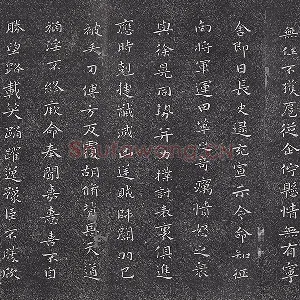 無任不獲扈從企佇懸情無有寧
舍即日長史逮充宣示令命知征
南將軍運田單之奇厲憤怒之衆
與徐晃同勢并力撲討表裏俱進
應時剋捷馘滅凶逆賊帥關羽已
被矢刃傅方反覆胡脩背恩天道
禍淫不終厥命奉聞嘉憙喜不自
勝望路載笑踊躍逸豫臣不勝欣